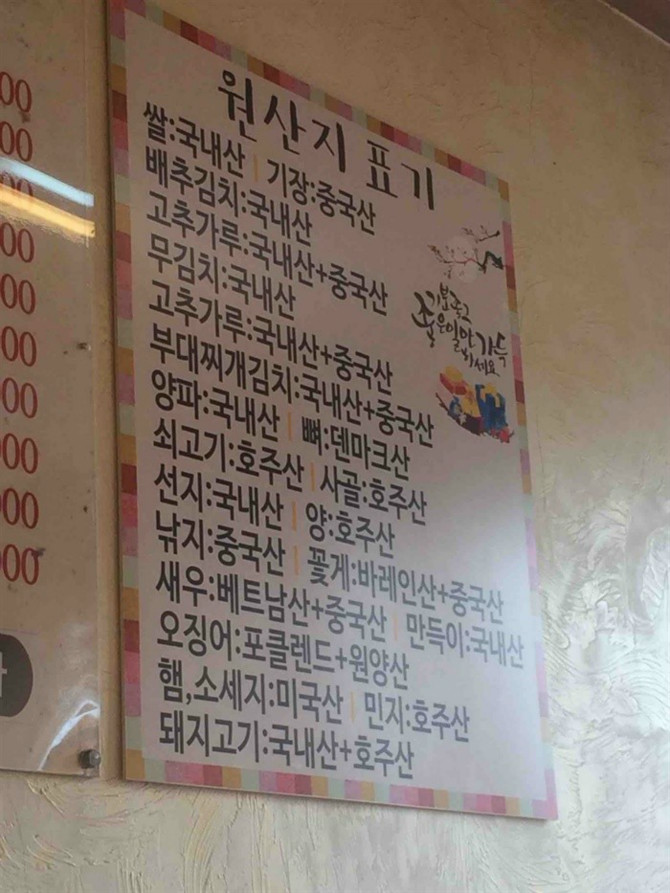 원산지 표기
쌀:국내산 | 기장:중국산
배추김치:국내산
고추가루:국내산+중국산
무김치:국내산
고추가루:국내산+중국산
부대찌개김치:국내산+중국산
양파:국내산 | 뼈:덴마크산
쇠고기:호주산 | 사골:호주산
선지:국내산 | 양:호주산
낚지:중국산 | 꽃게:바레인산+중국산
새우:베트남산+중국산 | 만득이:국내산
오징어:포클렌드+원양산
햄,소세지:미국산 | 민지:호주산
돼지고기:국내산+호주산
기분좋고
좋은일만 가득
하세요
00
00
00
00
00
00
00
000
000
000